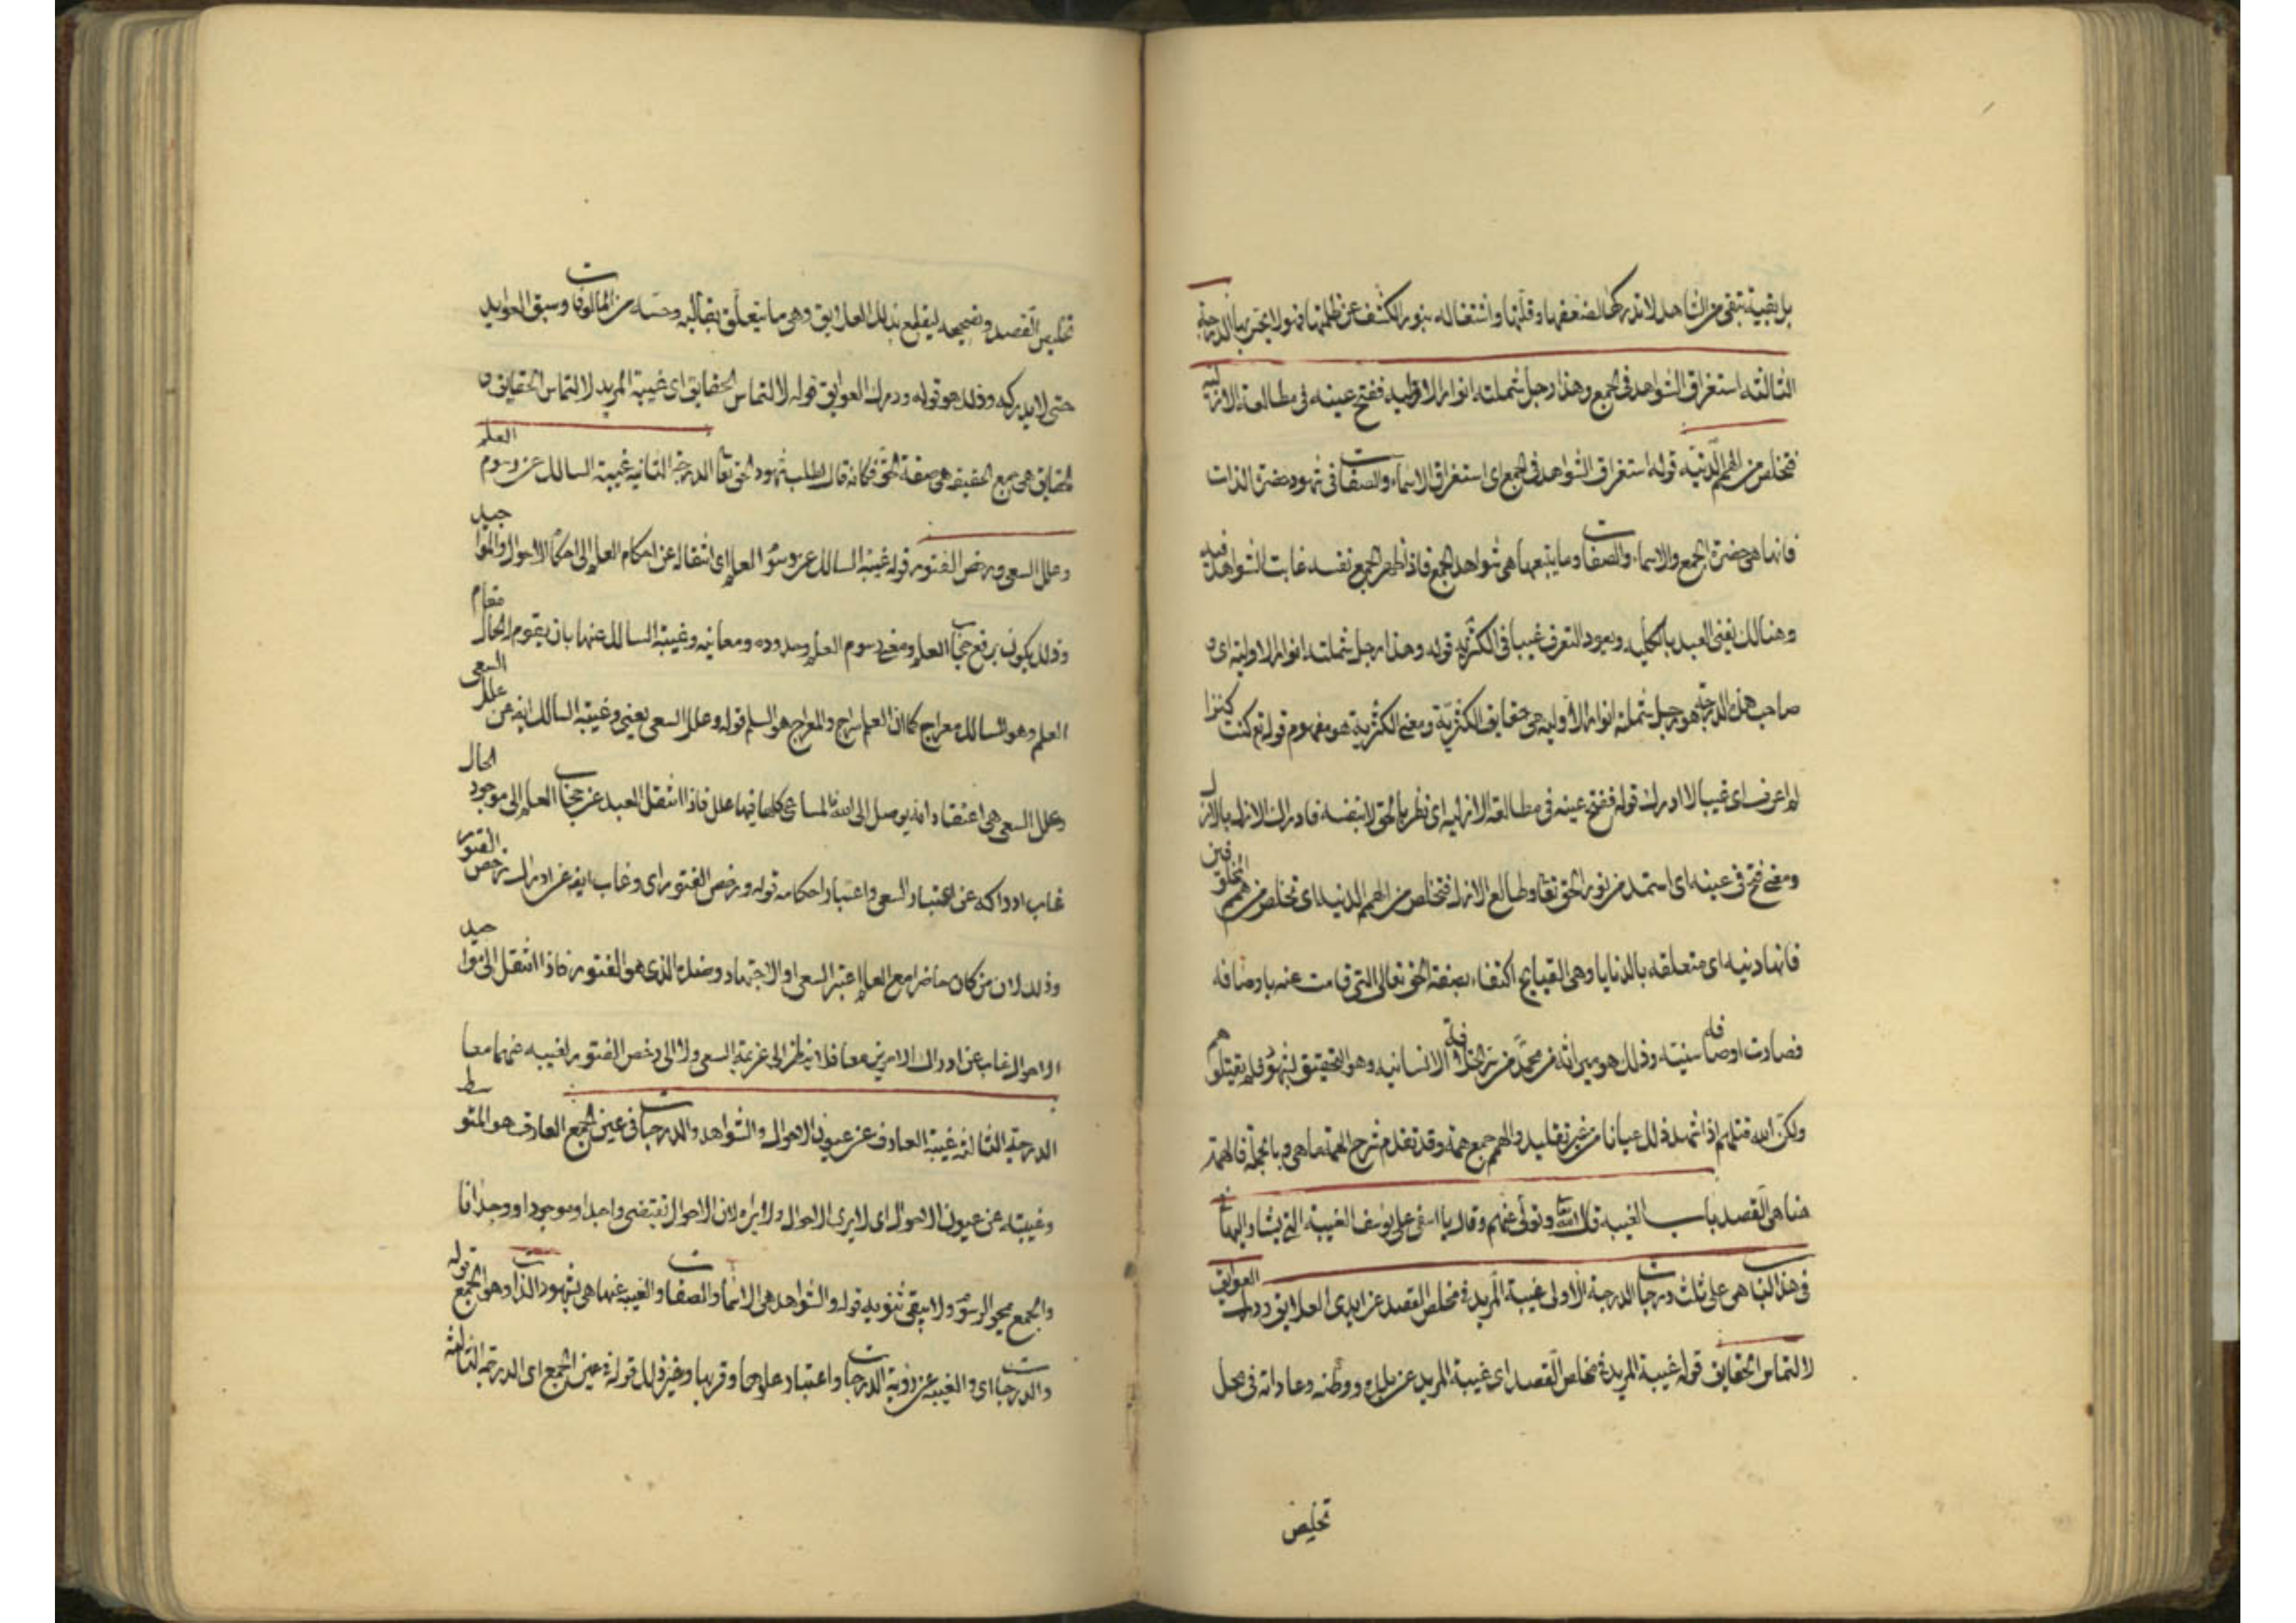 بل بقيية تبقى من الشاهد لا تدركها لضعفها وقلتها واشتغاله بنور الكشف عن ظلمتها فهو لا يحس بها الدرجة
الثالثة استغراق الشواهد فى الجمع وهذا رجل شملته انوار الاولية ففتح عينه فى مطالعة الازلية
فتخلص من الهمم الدنية قوله استغراق الشواهد فى الجمع اى استغراق الاسماء والصفات فى شهود حضرة الذات
فانها هى حضرة الجمع والاسماء والصفات وما يتبعها هى شواهد الجمع فاذا ظهر الجمع نفسه غابت الشواهد فيه
وهنالك يفنى العبد بالكلية ويعود التعرف غيبا فى قوله وهذا رجل شملته انوار الاولية اى
صاحب هذه الدرجة هو رجل شملته انوار الاولية هى حقايق ومعنى هو مفهوم قوله كنت كنزا
لم اعرف اى غيبا لا ادرك قوله ففتح عينه فى مطالعة الازلية اى نظر بالحق لا بنفسه فادرك الازل بالازل
ومعنى فتح فى عينه اى استمد من نور الحق تعا وطالع الازل فتخلص من الهمم الدنيه اى تخلص من همم الخلق
فانها دنيه اى متعلقه بالدنايا وهى القبايح اكتفاء بصفة الحق تعالى التى قامت عنه باوصافه
فصارت اوصافه سنيته وذلك هو ميراثه من محمد من الانسانيه وهو التحقيق فلم تقتلوهم
ولكن الله قتلهم اذ شهد ذلك عيانا من غير تقليد والهمم جمع همة وقد تقدم شرح الهمة ما هى وبالجملة فالهمة
هنا هى القصد باب الغيبه قال الله تعا وتولى عنهم وقال يا اسفى على يوسف الغيبة التى يشار اليها
فى هذا الباب هى على ثلث درجات الدرجة الاولى غيبة المريد فى مخلص القصد عن ايدى العلايق ودرك العوايق
لالتماس الحقايق قوله غيبة المريد فى مخلص القصد اى غيبة المريد عن بلده ووطنه وعاداته فى محل
تخليص
تخليص القصد وتصحيحه ليقطع بذلك العلايق وهى ما يتعلق بقالبه وحسه من المالوفات وسبق العوايد
حتى لا يدركه وذلك هو قوله ودرك العوايق قوله لالتماس الحقايق اى غيبة المريد لالتماس الحقايق و
الحقايق هى جمع الحقيقة هى صفة الحق فكانه قال لطلب شهود الحق تعا الدرجة الثانيه غيبة السالك عن رسوم العلم
وعلل السعى ورخص الفتور قوله غيبة السالك عن رسوم العلم اى انتقاله عن احكام العلم الى احكام الاحوال والمواجيد
وذلك يكون برفع حجاب العلم ومعنى رسوم العلم وحدوده ومعانيه وغيبة السالك عنها بان يقوم الحال مقام
العلم وهو للسالك معراج كما ان العلم سراج والمعراج هو السلم قوله وعلل السعى يعنى وغيبة السالك ايضا عن علل السعى
وعلل السعى هى اعتقاده انه يوصل الى الله تعا المساعى كلها فيها علل فاذا انتقل العبد عن حجاب العلم الى موجود الحال
غاب ادراكه عن اعتبار السعى واعتبار احكامه قوله ورخص الفتور اى وغاب ايضا عن ادراك رخص الفتور
وذلك لان من كان حاضرا مع العلم اعتبر السعى والاجتهاد وضده الذى هو الفتور فاذا انتقل الى مواجيد
الاحوال غاب عن ادراك الامرين معا فلا ينظر الى عزيمة السعى ولا الى رخص الفتور لغيبه عنهما معا
الدرجة الثالثة غيبة العارف عن عيون الاحوال والشواهد والدرجات فى عين الجمع العارف هو المتوسط
وغيبته عن عيون الاحوال اى لا يرى الاحوال ولا لان الاحوال تقتضى واجدا وموجودا ووجدانا
والجمع يمحو الرسوم ولا يبقى ثنويه قوله والشواهد هى الاسما والصفات والغيبه عنها هى بشهود الذات وهو الجمع قوله
والدرجات اى والغيبه عن رؤية الدرجات واعتبار علوها وقربها وغير ذلك قوله فى عين الجمع اى الدرجة الثالثة